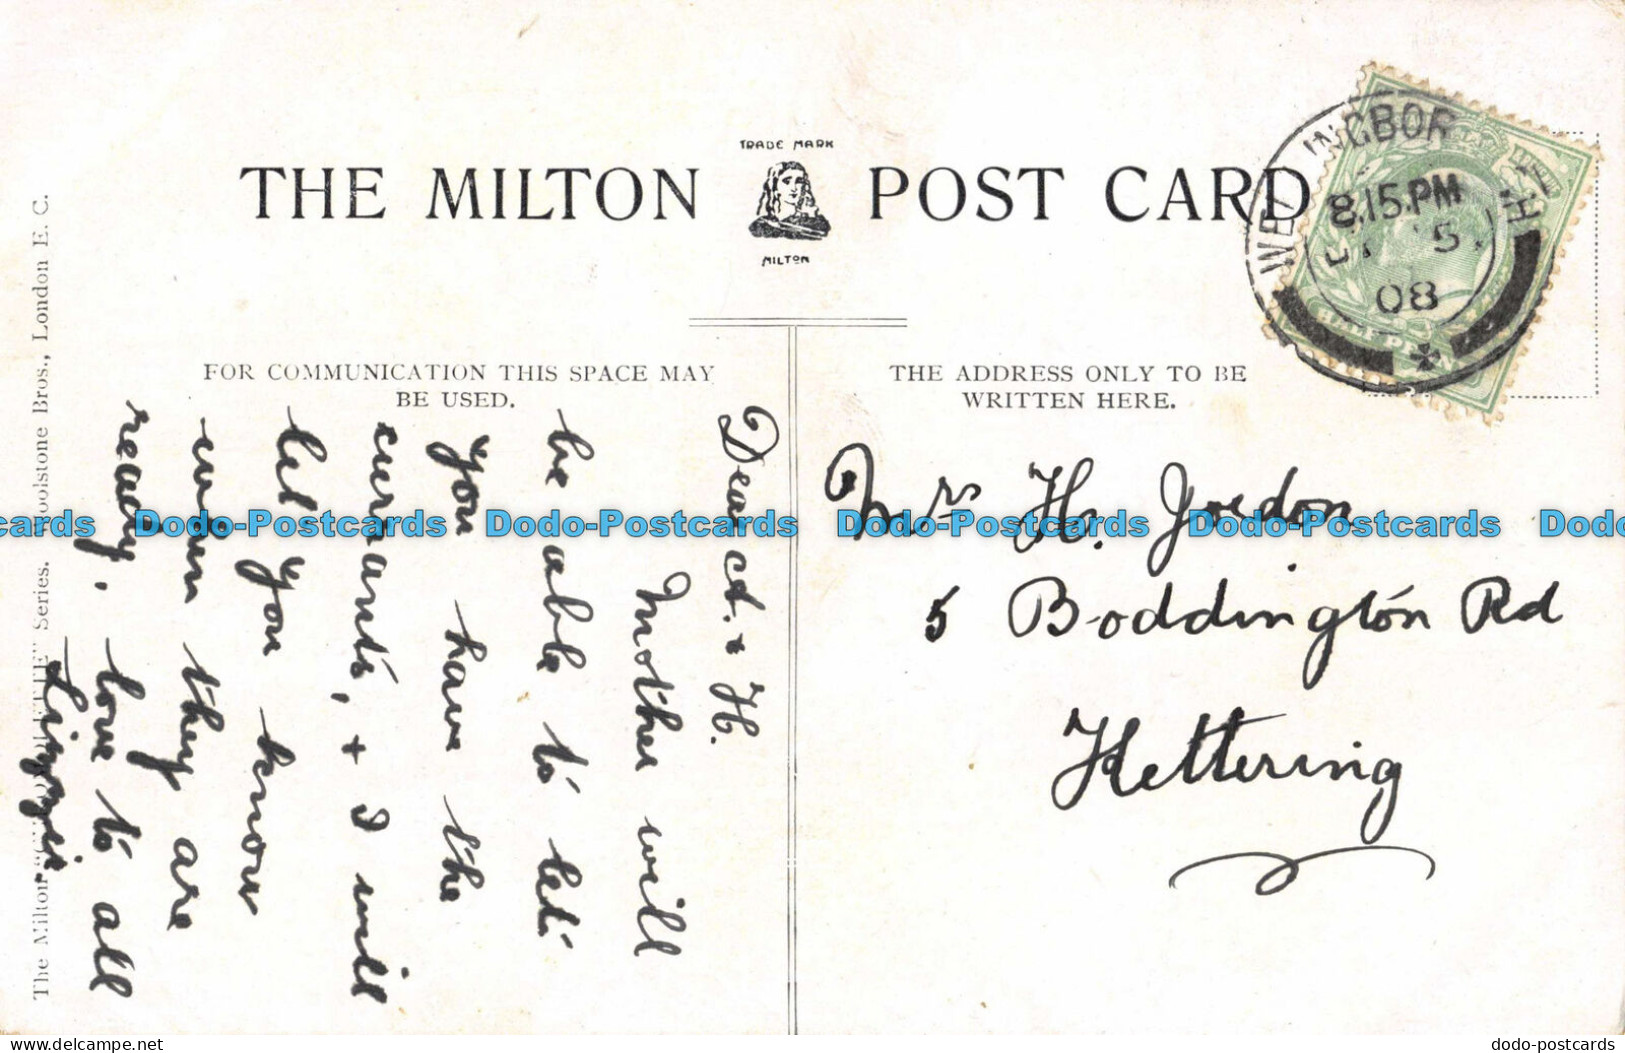 TRADE MARK
THE MILTON POST CARD
MILTON
WELLINGBOROUGH
8.15.PM
5
08
HALF PENNY
FOR COMMUNICATION THIS SPACE MAY
BE USED.
THE ADDRESS ONLY TO BE
WRITTEN HERE.
Dear
& H.
Mother will
be able to let
you have the
currants, + I will
let you know
when they are
ready. love to all
Lizzie.
Mrs H. Jordon
5 Boddington Rd
Kettering
The Milton Series. Woolstone Bros., London E. C.
Dodo-Postcards Dodo-Postcards Dodo-Postcards Dodo-Postcards
Dodo-Postcards.delcampe.net
dodo-postcards